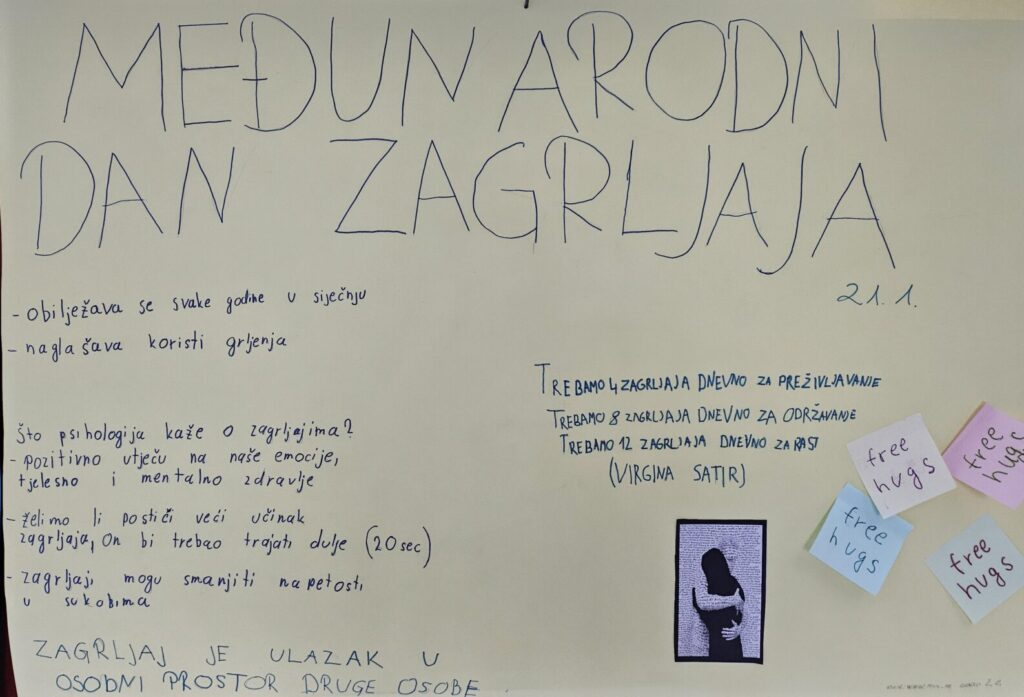 MEĐUNARODNI
DAN ZAGRLJAJA
21. 1.
- obilježava se svake godine u siječnju
- naglašava koristi grljenja
Što psihologija kaže o zagrljajima?
- pozitivno utječu na naše emocije,
tjelesno i mentalno zdravlje
- želimo li postići veći učinak
zagrljaja, On bi trebao trajati dulje (20 sec)
- zagrljaji mogu smanjiti napetosti
u sukobima
ZAGRLJAJ JE ULAZAK U
OSOBNI PROSTOR DRUGE OSOBE
TREBAMO 4 ZAGRLJAJA DNEVNO ZA PREŽIVLJAVANJE
TREBAMO 8 ZAGRLJAJA DNEVNO ZA ODRŽAVANJE
TREBAMO 12 ZAGRLJAJA DNEVNO ZA RAST
(VIRGINA SATIR)
free
hugs
free
hugs
free
hugs
free
hugs